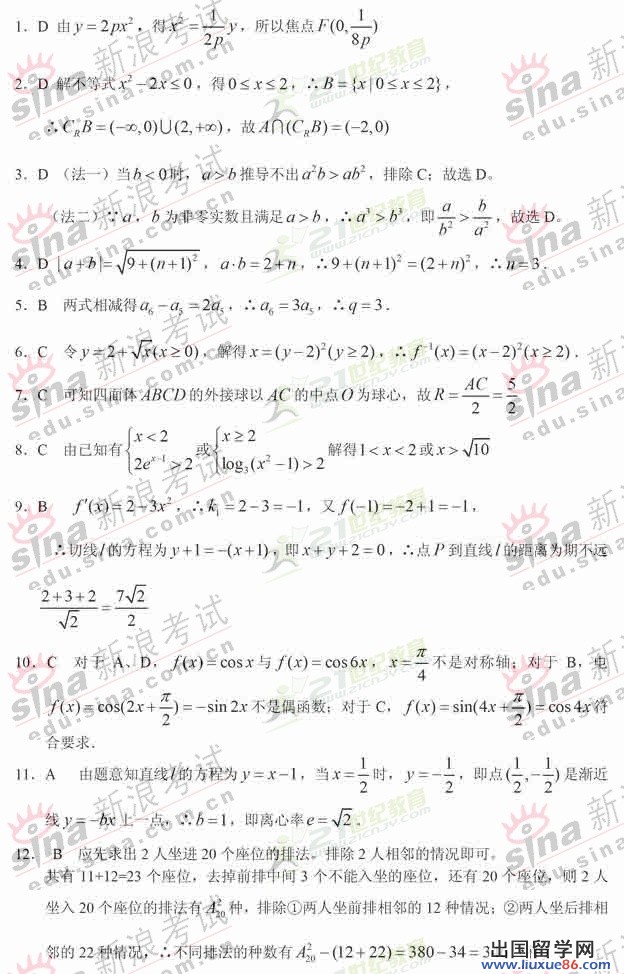 1. D 由 y = 2px²，得 x² = 1/(2p) y，所以焦点 F(0, 1/(8p))
2. D 解不等式 x² − 2x ≤ 0，得 0 ≤ x ≤ 2，∴ B = {x | 0 ≤ x ≤ 2}，
∴ C_R B = (−∞,0)∪(2,+∞)，故 A∩(C_R B) = (−2,0)
3. D （法一）当 b < 0 时，a > b 推导不出 a²b > ab²，排除 C；故选 D。
（法二）∵ a，b 为非零实数且满足 a > b，∴ a³ > b³，即 a/b² > b/a²，故选 D。
4. D |a+b| = √(9+(n+1)²)，a·b = 2+n，∴ 9+(n+1)² = (2+n)²，∴ n = 3．
5. B 两式相减得 a₆ − a₅ = 2a₅，∴ a₆ = 3a₅，∴ q = 3．
6. C 令 y = 2+√x (x ≥ 0)，解得 x = (y−2)² (y ≥ 2)，∴ f⁻¹(x) = (x−2)² (x ≥ 2)．
7. C 可知四面体 ABCD 的外接球以 AC 的中点 O 为球心，故 R = AC/2 = 5/2
8. C 由已知有 {x < 2, 2e^(x−1) > 2 或 {x ≥ 2, log₃(x²−1) > 2 解得 1 < x < 2 或 x > √10
9. B f′(x) = 2−3x²，∴ k₁ = 2−3 = −1，又 f(−1) = −2+1 = −1，
∴切线 l 的方程为 y+1 = −(x+1)，即 x+y+2 = 0，∴点 P 到直线 l 的距离为期不远
(2+3+2)/√2 = 7√2/2
10. C 对于 A、D，f(x) = cos x 与 f(x) = cos 6x，x = π/4 不是对称轴；对于 B，电
f(x) = cos(2x + π/2) = −sin 2x 不是偶函数；对于 C，f(x) = sin(4x + π/2) = cos 4x 符
合要求．
11. A 由题意知直线 l 的方程为 y = x−1，当 x = 1/2 时，y = −1/2，即点 (1/2, −1/2) 是渐近
线 y = −bx 上一点，∴ b = 1，即离心率 e = √2．
12. B 应先求出 2 人坐进 20 个座位的排法。排除 2 人相邻的情况即可。
共有 11+12=23 个座位，去掉前排中间 3 个不能入坐的座位，还有 20 个座位，则 2 人
坐入 20 个座位的排法有 A²₂₀ 种，排除①两人坐前排相邻的 12 种情况；②两人坐后排相
邻的 22 种情况，∴不同排法的种数有 A²₂₀ − (12+22) = 380 − 34 = 3
出国留学网
www.liuxue86.com
sina 新浪考试
edu.sina.com.cn
21世纪教育